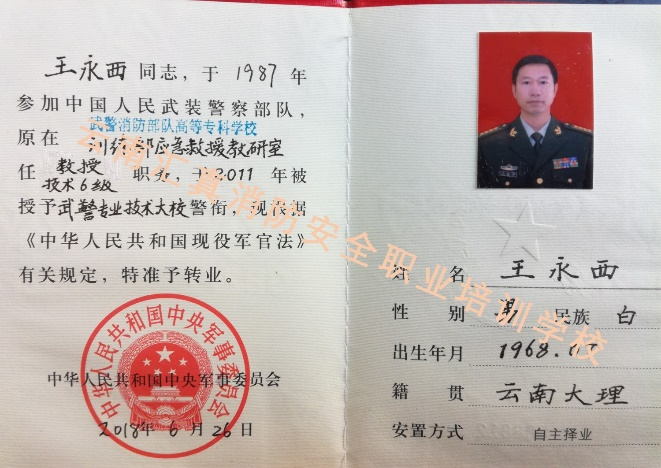 王永西同志，于1987年
参加中国人民武装警察部队，
武警消防部队高等专科学校
原在训练部应急救援教研室
教授
任 职务，于2011年被
技术6级
授予武警专业技术大校警衔，现依据
《中华人民共和国现役军官法》
有关规定，特准予转业。
中华人民共和国中央军事委员会
中华人民共和国中央军事委员会
2018年6月26日
姓名 王永西
性别 男 民族 白
出生年月 1968.07
籍贯 云南大理
安置方式 自主择业
云南汇真消防安全职业培训学校